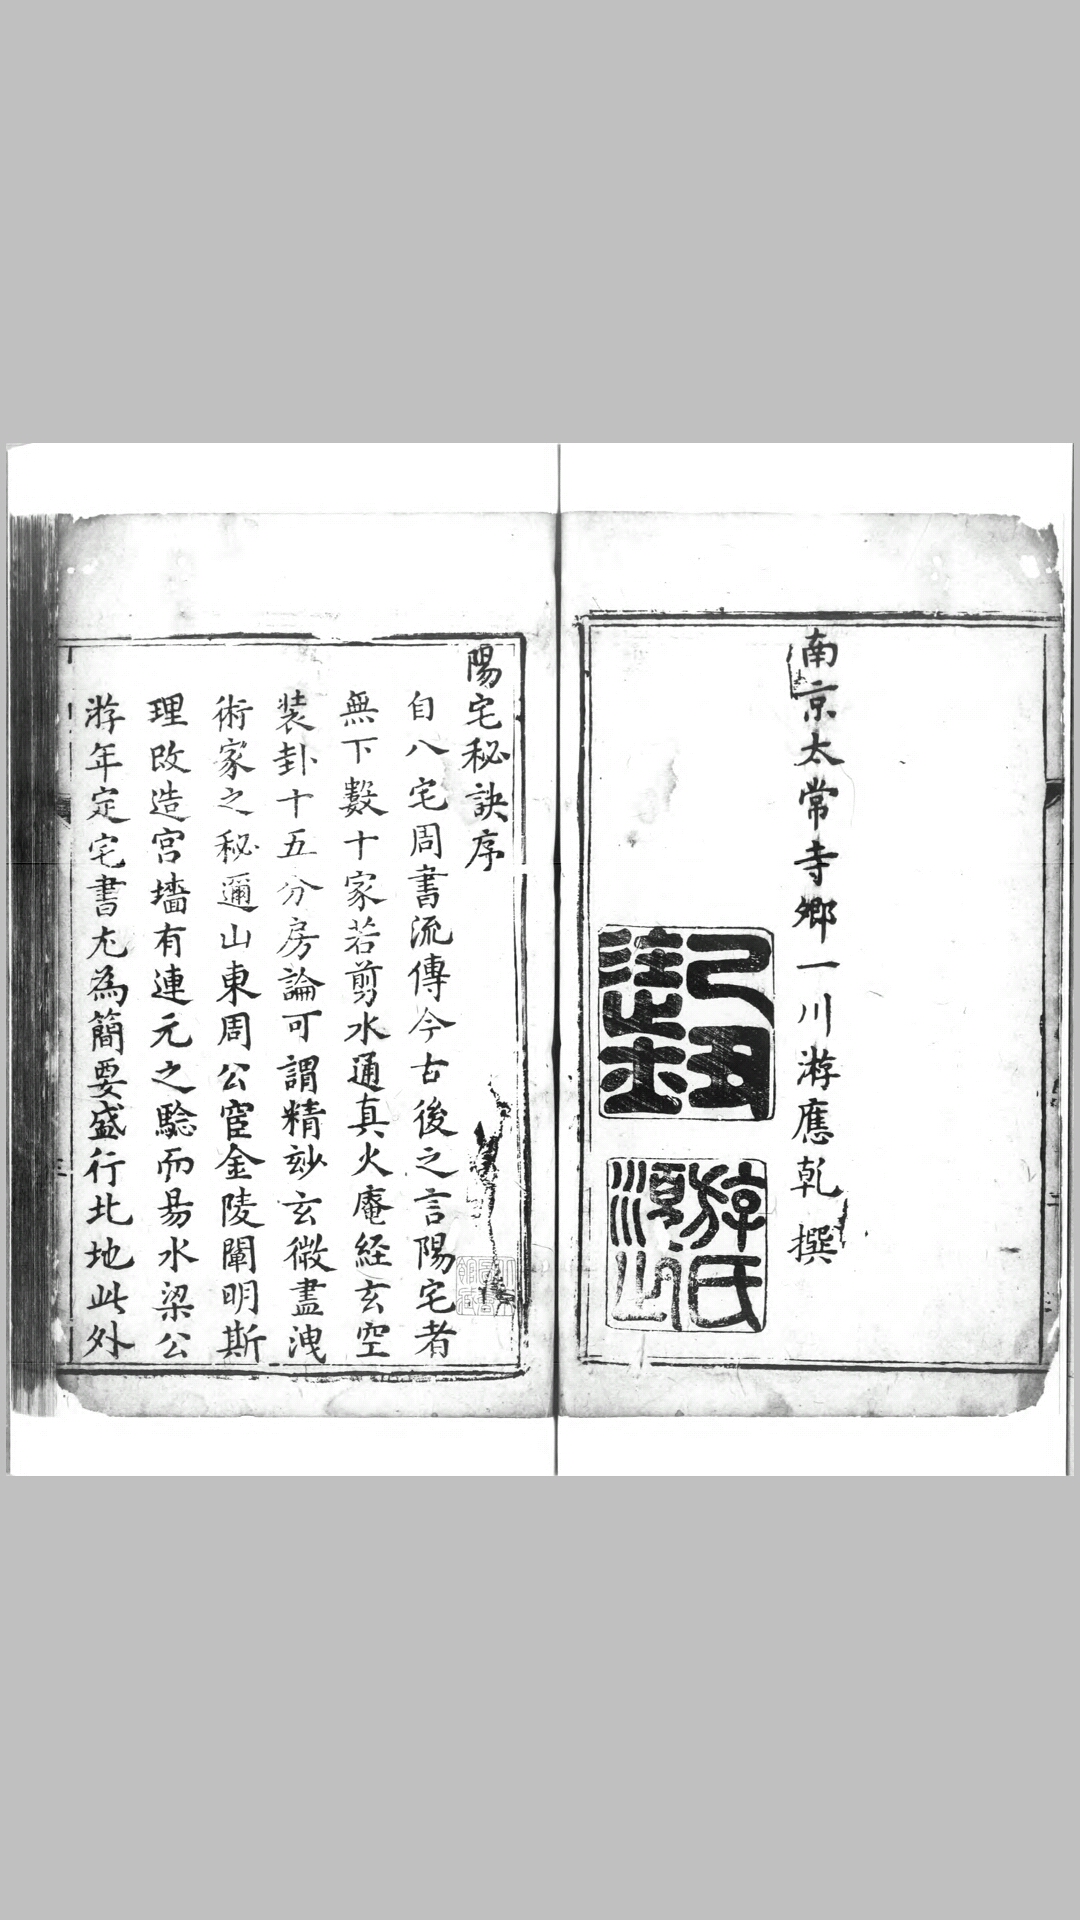 南京太常寺卿一川游應乾 撰
己丑進士
游氏順之
陽宅秘訣序
自八宅周書流傳今古後之言陽宅者
無下數十家若剪水通真火庵経玄空
装卦十五分房論可謂精玅玄微盡洩
術家之秘邇山東周公宦金陵闡明斯
理改造宮墻有連元之騐而昜水梁公
游年定宅書尤為簡要盛行北地此外